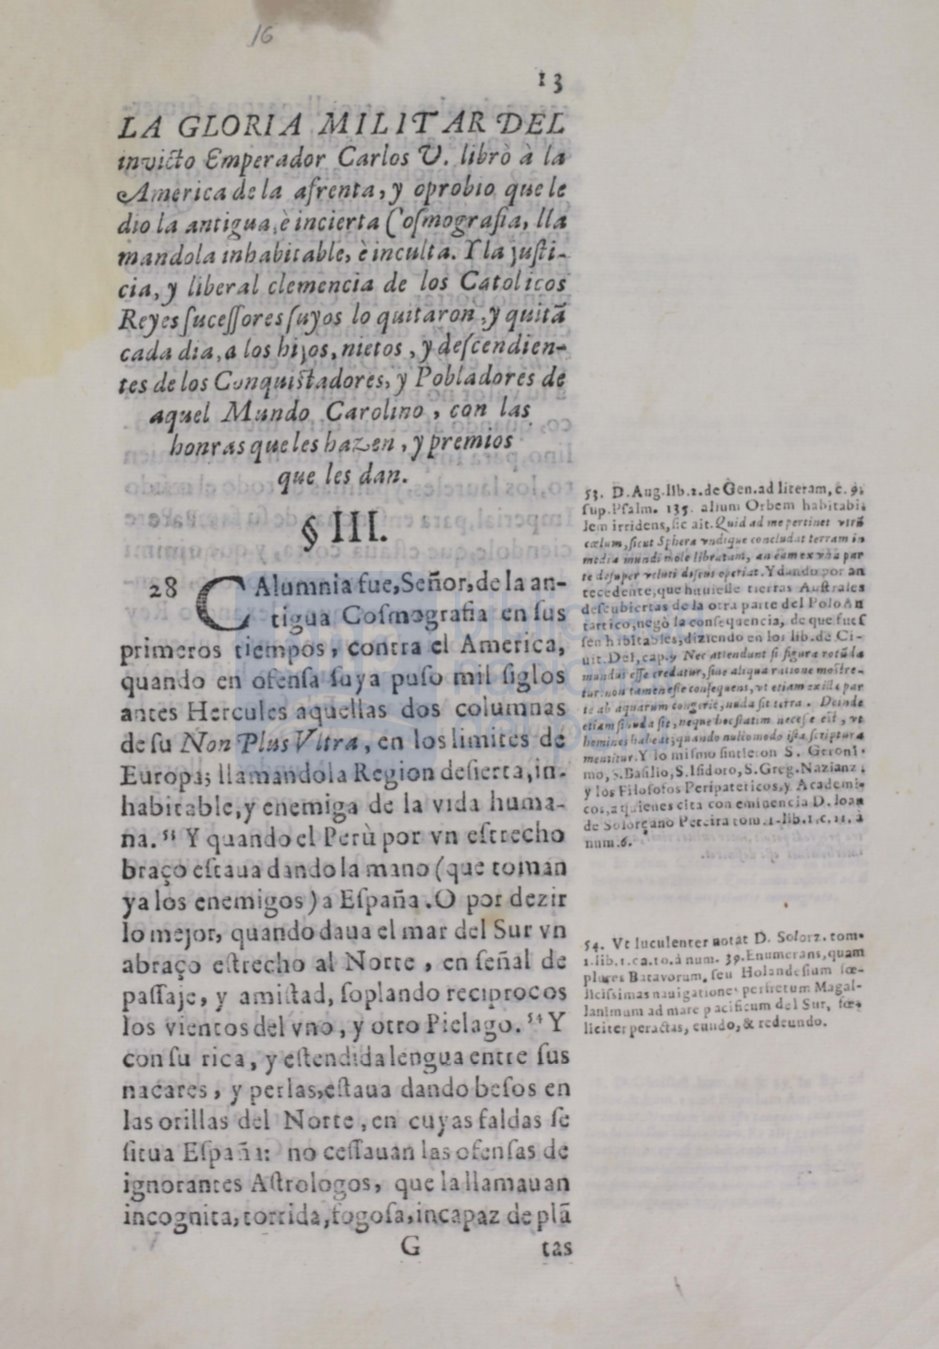 16
13
LA GLORIA MILITAR DEL
invicto Emperador Carlos V. librò à la
America de la afrenta, y oprobio que le
dio la antigua, è incierta Coſmograſia, lla
mandola inhabitable, è inculta. Y la juſti-
cia, y liberal clemencia de los Catolicos
Reyes ſuceſſores ſuyos lo quitaron, y quitã
cada dia, a los hijos, nietos, y deſcendien-
tes de los Conquiſtadores, y Pobladores de
aquel Mundo Carolino, con las
honras que les hazen, y premios
que les dan.
§ III.
28 CAlumnia fue, Señor, de la an-
tigua Coſmografia en ſus
primeros tiempos, contra el America,
quando en ofenſa ſuya puſo mil ſiglos
antes Hercules aquellas dos columnas
de ſu Non Plus Vltra, en los limites de
Europa; llamandola Region deſierta, in-
habitable, y enemiga de la vida huma-
na. 53 Y quando el Perù por vn eſtrecho
braço eſtaua dando la mano (que toman
ya los enemigos) a Eſpaña. O por dezir
lo mejor, quando daua el mar del Sur vn
abraço eſtrecho al Norte, en ſeñal de
paſſaje, y amiſtad, ſoplando reciprocos
los vientos del vno, y otro Pielago. 54 Y
con ſu rica, y eſtendida lengua entre ſus
nacares, y perlas, eſtaua dando beſos en
las orillas del Norte, en cuyas faldas ſe
ſitua Eſpaña: no ceſſauan las ofenſas de
ignorantes Aſtrologos, que la llamauan
incognita, torrida, fogoſa, incapaz de plã
G tas
53. D. Aug. lib. 2. de Gen. ad literam, c. 9.
ſup. Pſalm. 135. alium Orbem habitabi
lem irridens, ſic ait. Quid ad me pertinet vtrũ
cœlum, ſicut Sphera vndique concludat terram in
media mundi mole libratam, an eam ex vna par
te deſuper veluti diſcus operiat. Y dando por an
tecedente, que huuieſſe tierras Auſtrales
deſcubiertas de la otra parte del Polo An
tartico, negò la conſequencia, de que fueſ
ſen habitables, diziendo en los lib. de Ci-
uit. Dei, cap. 9 Nec attendunt ſi figura rotũda
mundus eſſe credatur, ſiue aliqua ratione moſtre-
tur: non tamen eſſe conſequens, vt etiam ex illa par
te ab aquarum congerie, nuda ſit terra. Deinde
etiam ſi nuda ſit, neque hoc ſtatim neceſe eſt, vt
homines habeat; quando nullo modo iſta ſcriptura
mentitur. Y lo miſmo ſintieron S. Geroni-
mo, S. Baſilio, S. Iſidoro, S. Greg. Nazianz.
y los Filoſofos Peripateticos, y Academi-
cos, a quienes cita con eminencia D. Ioan
de Solorçano Pereira tom. 1. lib. 1. c. 11. à
num. 6.
54. Vt luculenter notat D. Solorz. tom.
1. lib. 1. ca. 10. à num. 39. Enumerans, quam
plures Batavorum, ſeu Holandeſium fœ-
liciſsimas nauigationes per fretum Magal-
lanimum ad mare pacificum del Sur, fœ-
liciter peractas, eundo, & redeundo.